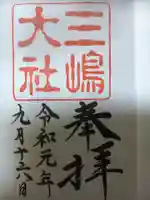 奉拝
三嶋
大社
令和元年
九月十六日